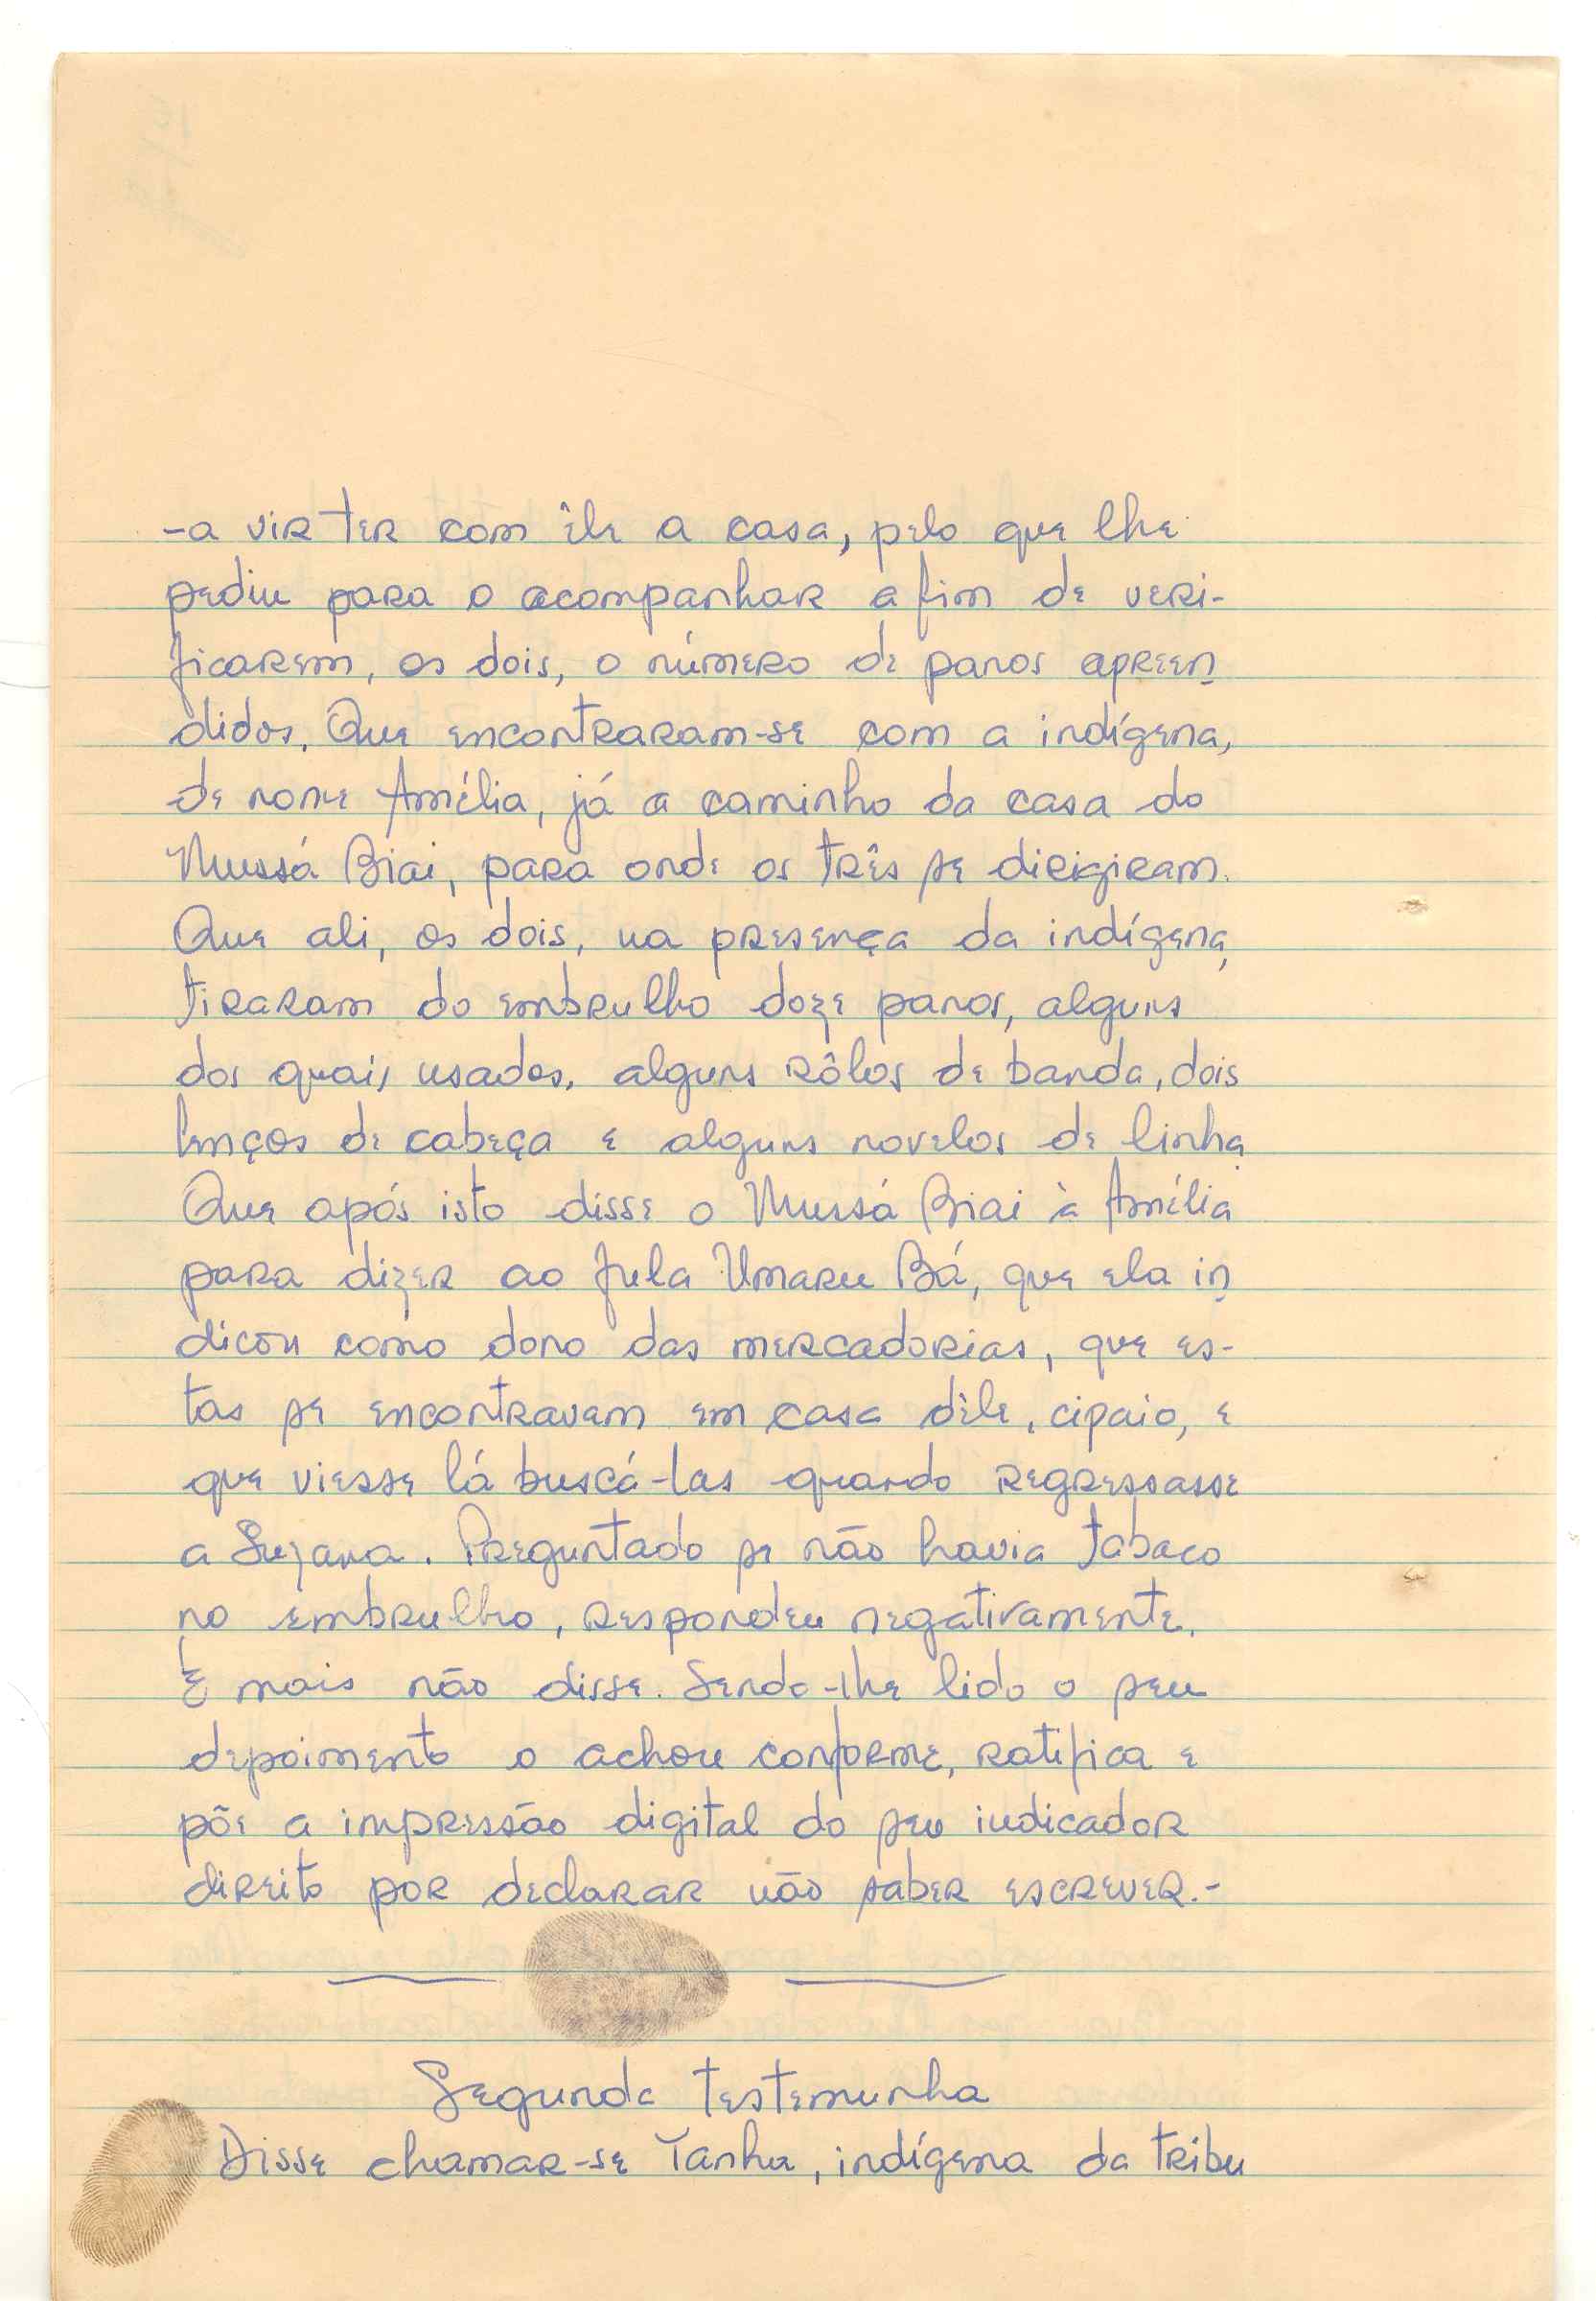 -a vir ter com êle a casa, pelo que lhe
pediu para o acompanhar a fim de veri-
ficarem, os dois, o número de panos apreen
didos. Que encontraram-se com a indígena,
de nome Amélia, já a caminho da casa do
Mussá Biai, para onde os três se dirigiram.
Que ali, os dois, na presença da indígena,
tiraram do embrulho doze panos, alguns
dos quais usados, alguns rôlos de banda, dois
lenços de cabeça e alguns novelos de linha.
Que após isto disse o Mussá Biai à Amélia
para dizer ao fula Umaru Bá, que ela in
dicou como dono das mercadorias, que es-
tas se encontravam em casa dêle, cipaio, e
que viesse lá buscá-las quando regressasse
a Suzana. Preguntado se não havia tabaco
no embrulho, respondeu negativamente.
E mais não disse. Sendo-lhe lido o seu
depoimento o achou conforme, ratifica e
põe a impressão digital do seu indicador
direito por declarar não saber escrever.-
Segunda testemunha
Disse chamar-se Tanha, indígena da tribu